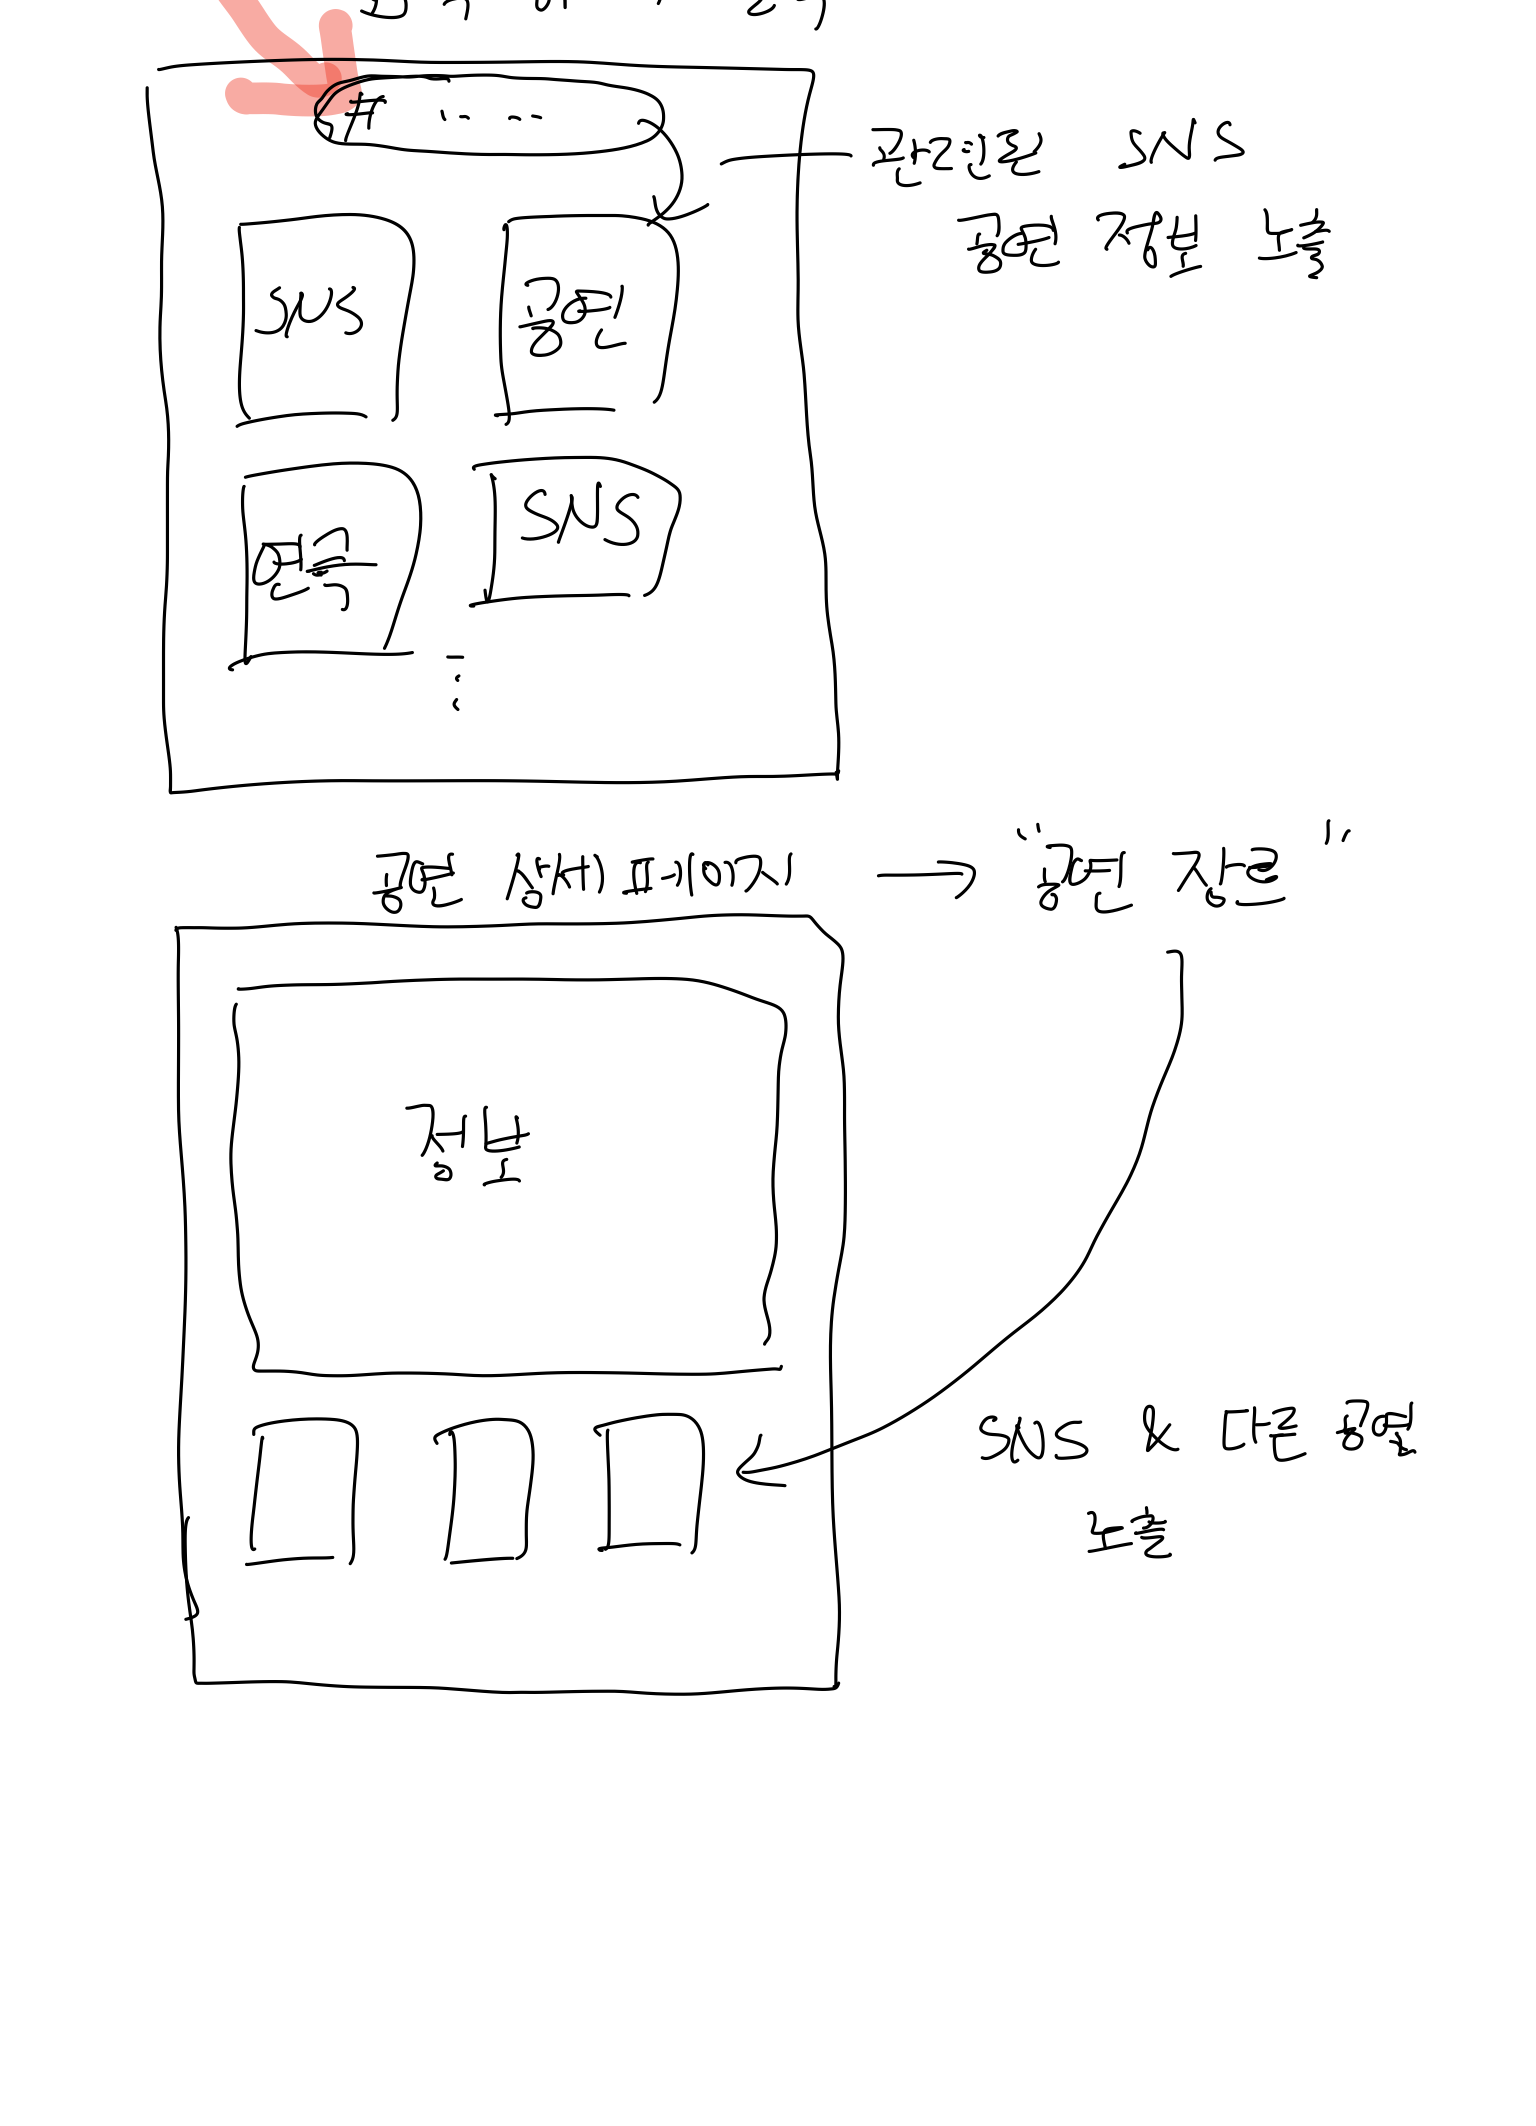 # .. ..
관련된 SNS
공연 정보 노출
SNS
공연
연극
SNS
공연 상세 페이지 → "공연 장르"
정보
SNS & 다른 공연
노출